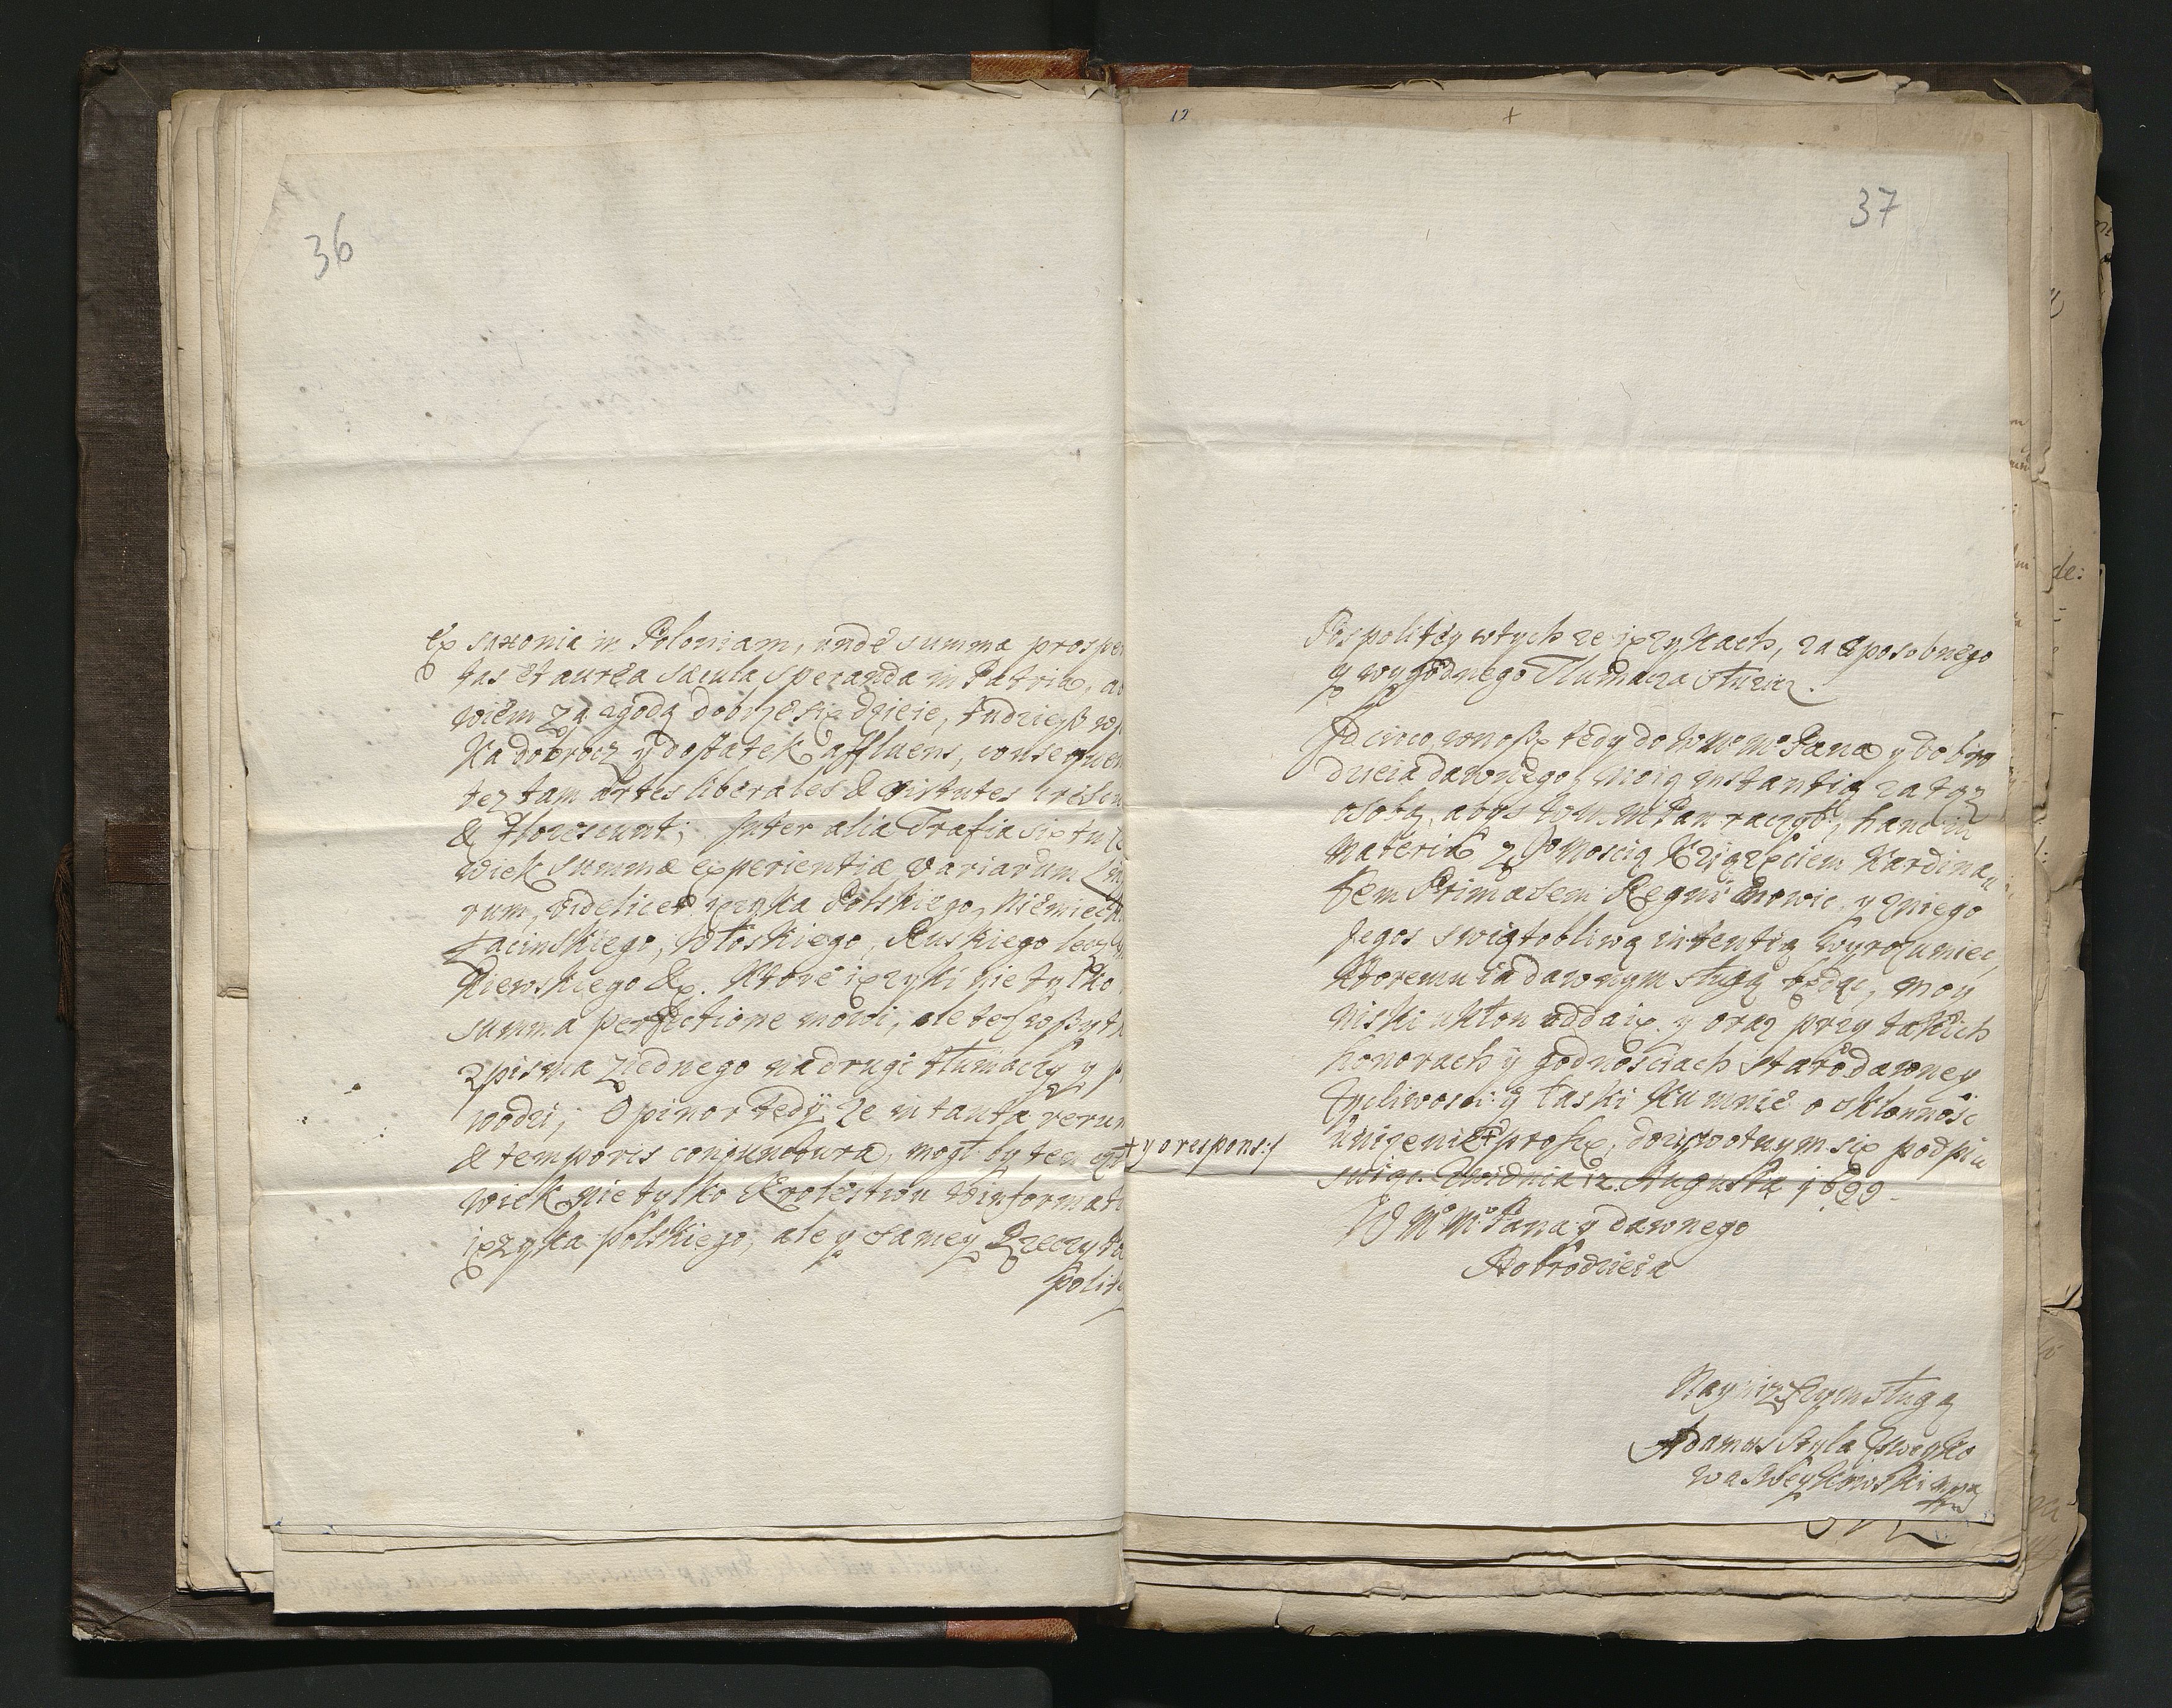 36
ex saxonia in Poloniam, unde summa prospe
tas et aurea sæcula speranda in Patria, a
wiem za zgodą dobrze się dzieie, tudzież w
ka dobrocz y dostatek affluens, consequen
tez tam artes liberales & virtutes cresc
& Florescunt; Inter alia Trafia się tu
wiek summæ experientiæ variarum Lin
rum, videlicet ięzyka Polskiego, Niemieck
Łacinskiego, Włoskiego, Ruskiego
Kiewskiego &c. Ktore ięzyki nie tylko
summa perfectione mowi, ale tez wszyt
z pisma z iednego na drugi tłumaczy y p
wodzi; Opinor tedy ze in tanta rerum
& temporis conjunctura, mogł by ten czł
wiek nie tylko Krolestwu w informati
ięzyka polskiego, ale y samey Rzeczy Po
spolit
12
+
37
Pospolitey w tych ze ięzykach, za sposobnego
y wygodnego Tlumacza służic.
Id circo wnoszę tedy do W Mº Mº Pana y dobro
dzieia dawnego, moię instantią za tą
osobą, abys W M M Pan raczył, hanc in
materia z Jº Moscią Xiążęciem Kardina
łem Primasem Regni mowic, y z niego
Jegos swiątobliwą intentią wyrozumiec,
Ktoremu ia dawnym sługą będąc, moy
niski ukłon oddaię, y oraz przy takich
honorach y godnosciach starodawney
Zycliwosci y łaski ku mnie o skłonnosc
+ y o respons:/
unizenie + proszę, dozywotnym się podpiu
swigo. Widnia 12. Augusta 1699.
W Mº Mº Pana y dawnego
Dobrodzieia
Nayniższym sługą
Adamus Styla